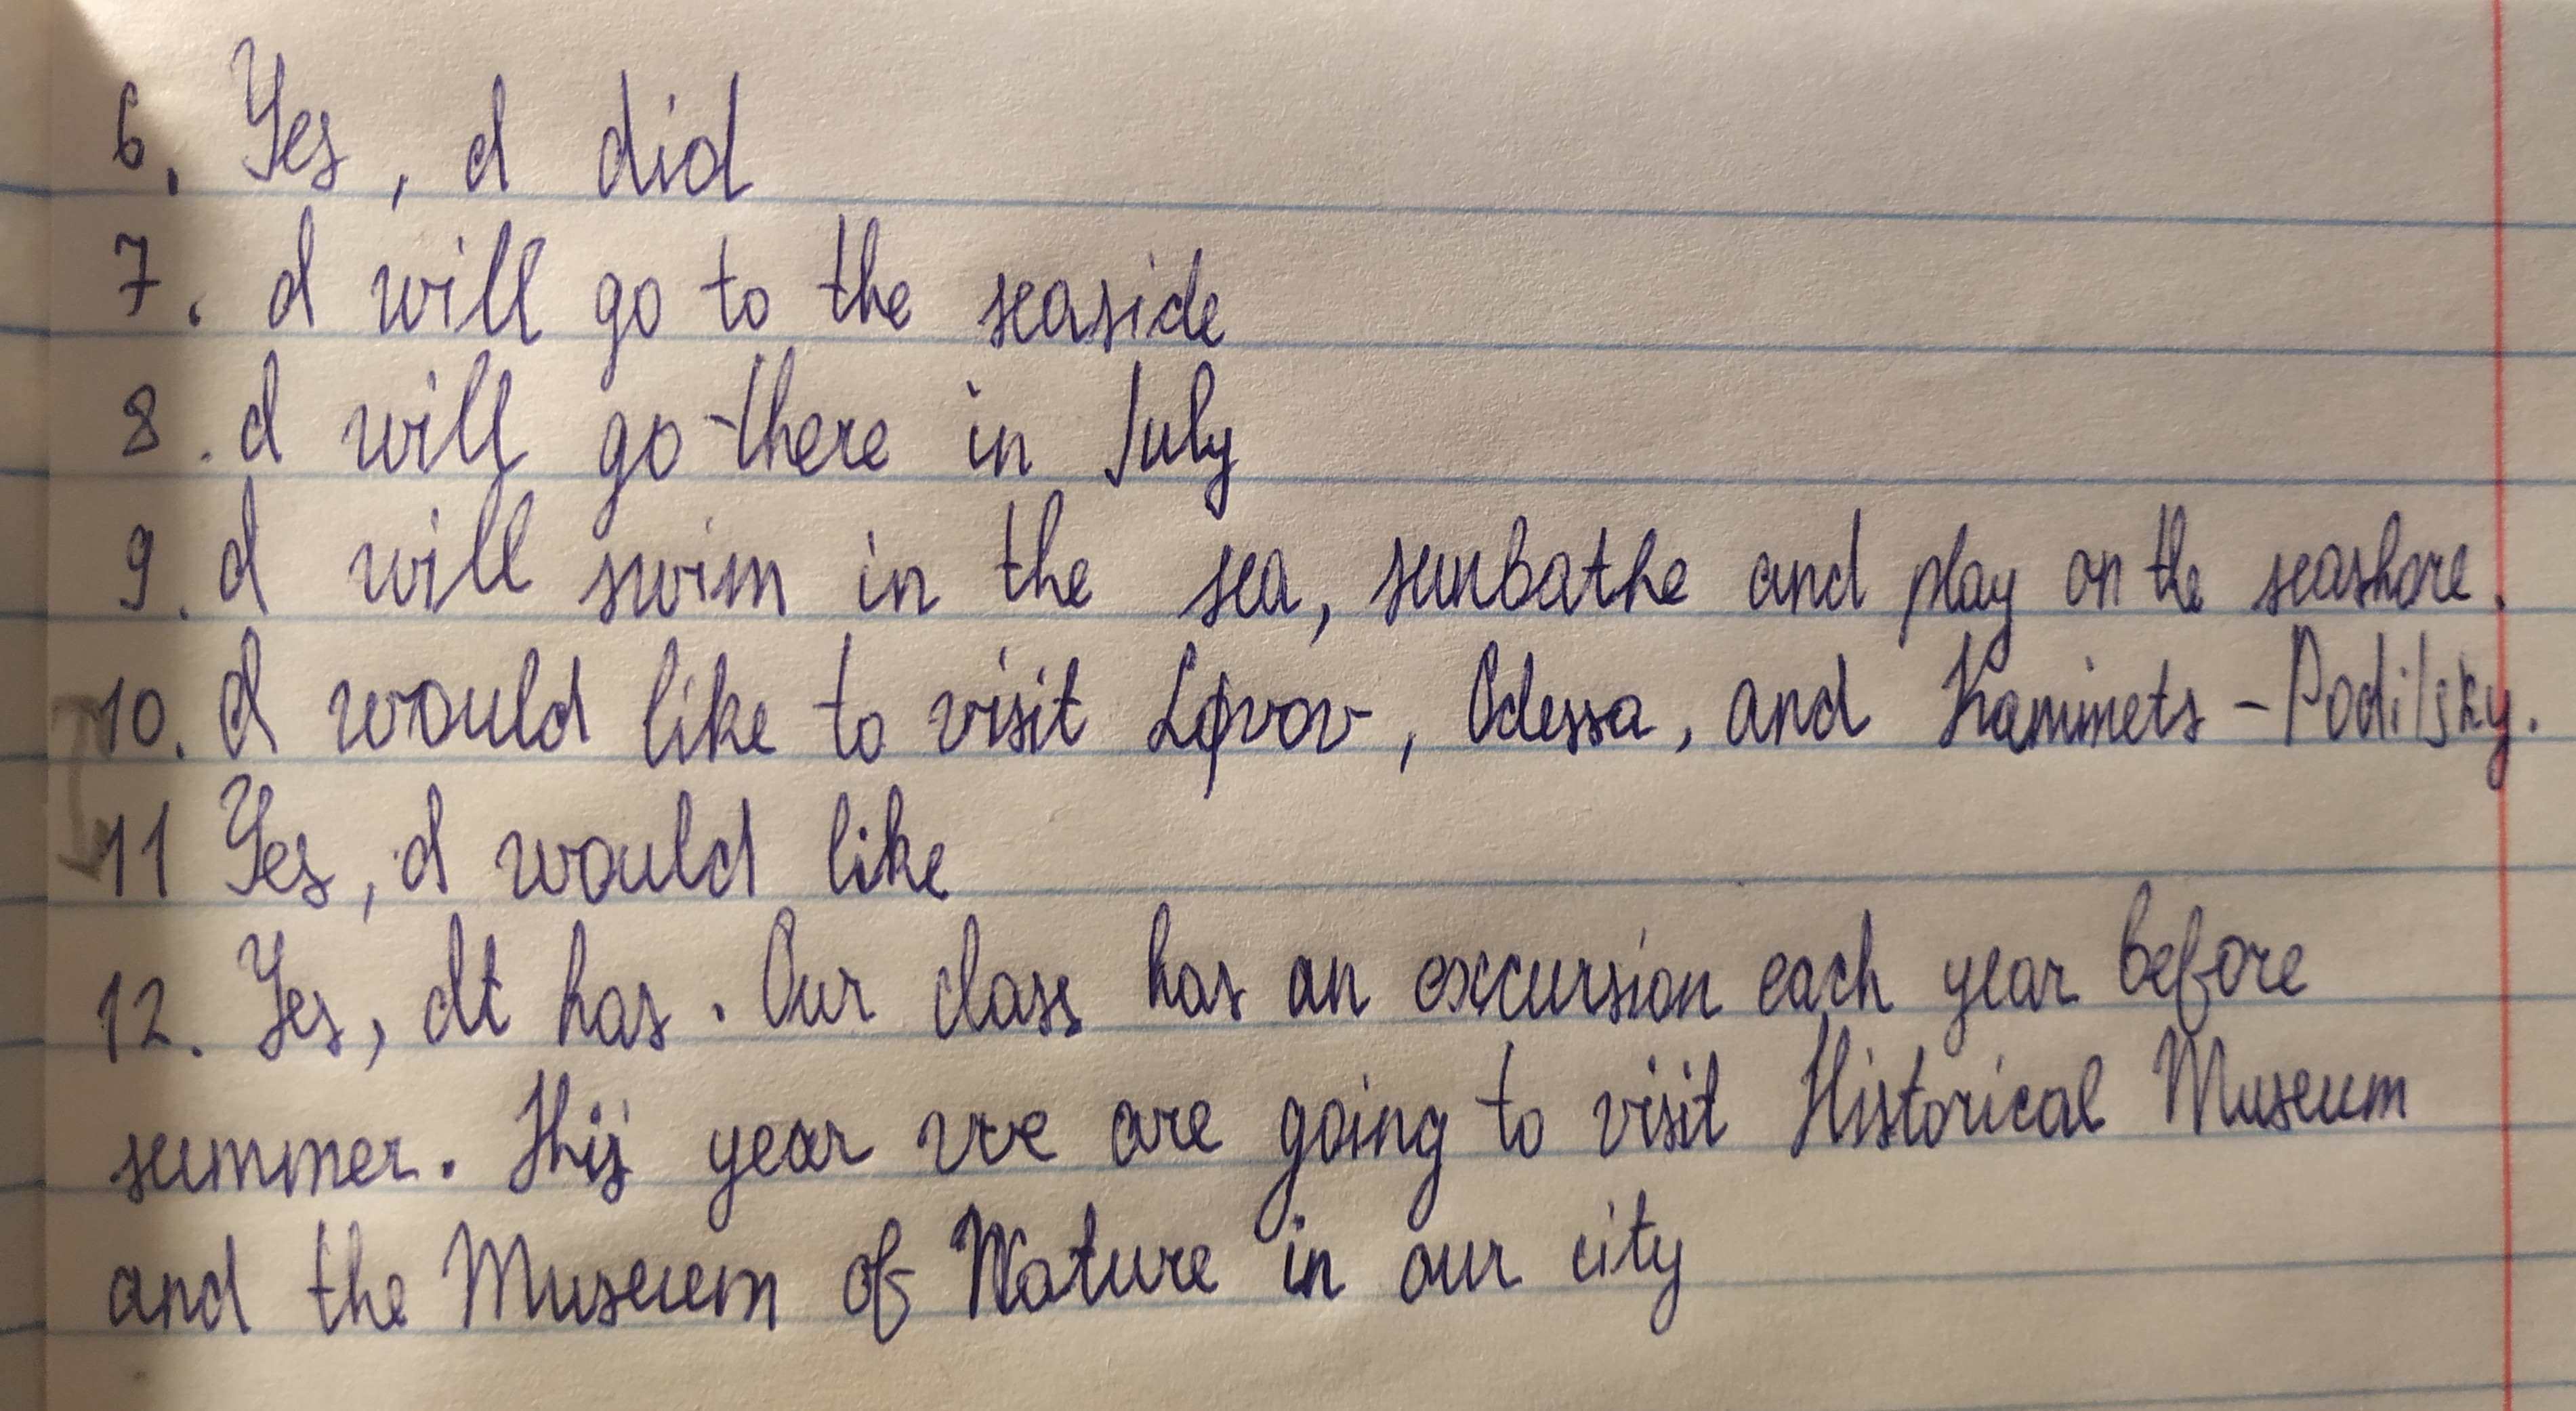 6. Yes, I did
7. I will go to the seaside
8. I will go there in July
9. I will swim in the sea, sunbathe and play on the seashore.
10. I would like to visit , Odessa, and Kaminets - Podilsky.
11 Yes, I would like
12. Yes, It has. Our class has an excursion each year before
summer. This year we are going to visit Historical Museum
and the Museum of Nature in our city